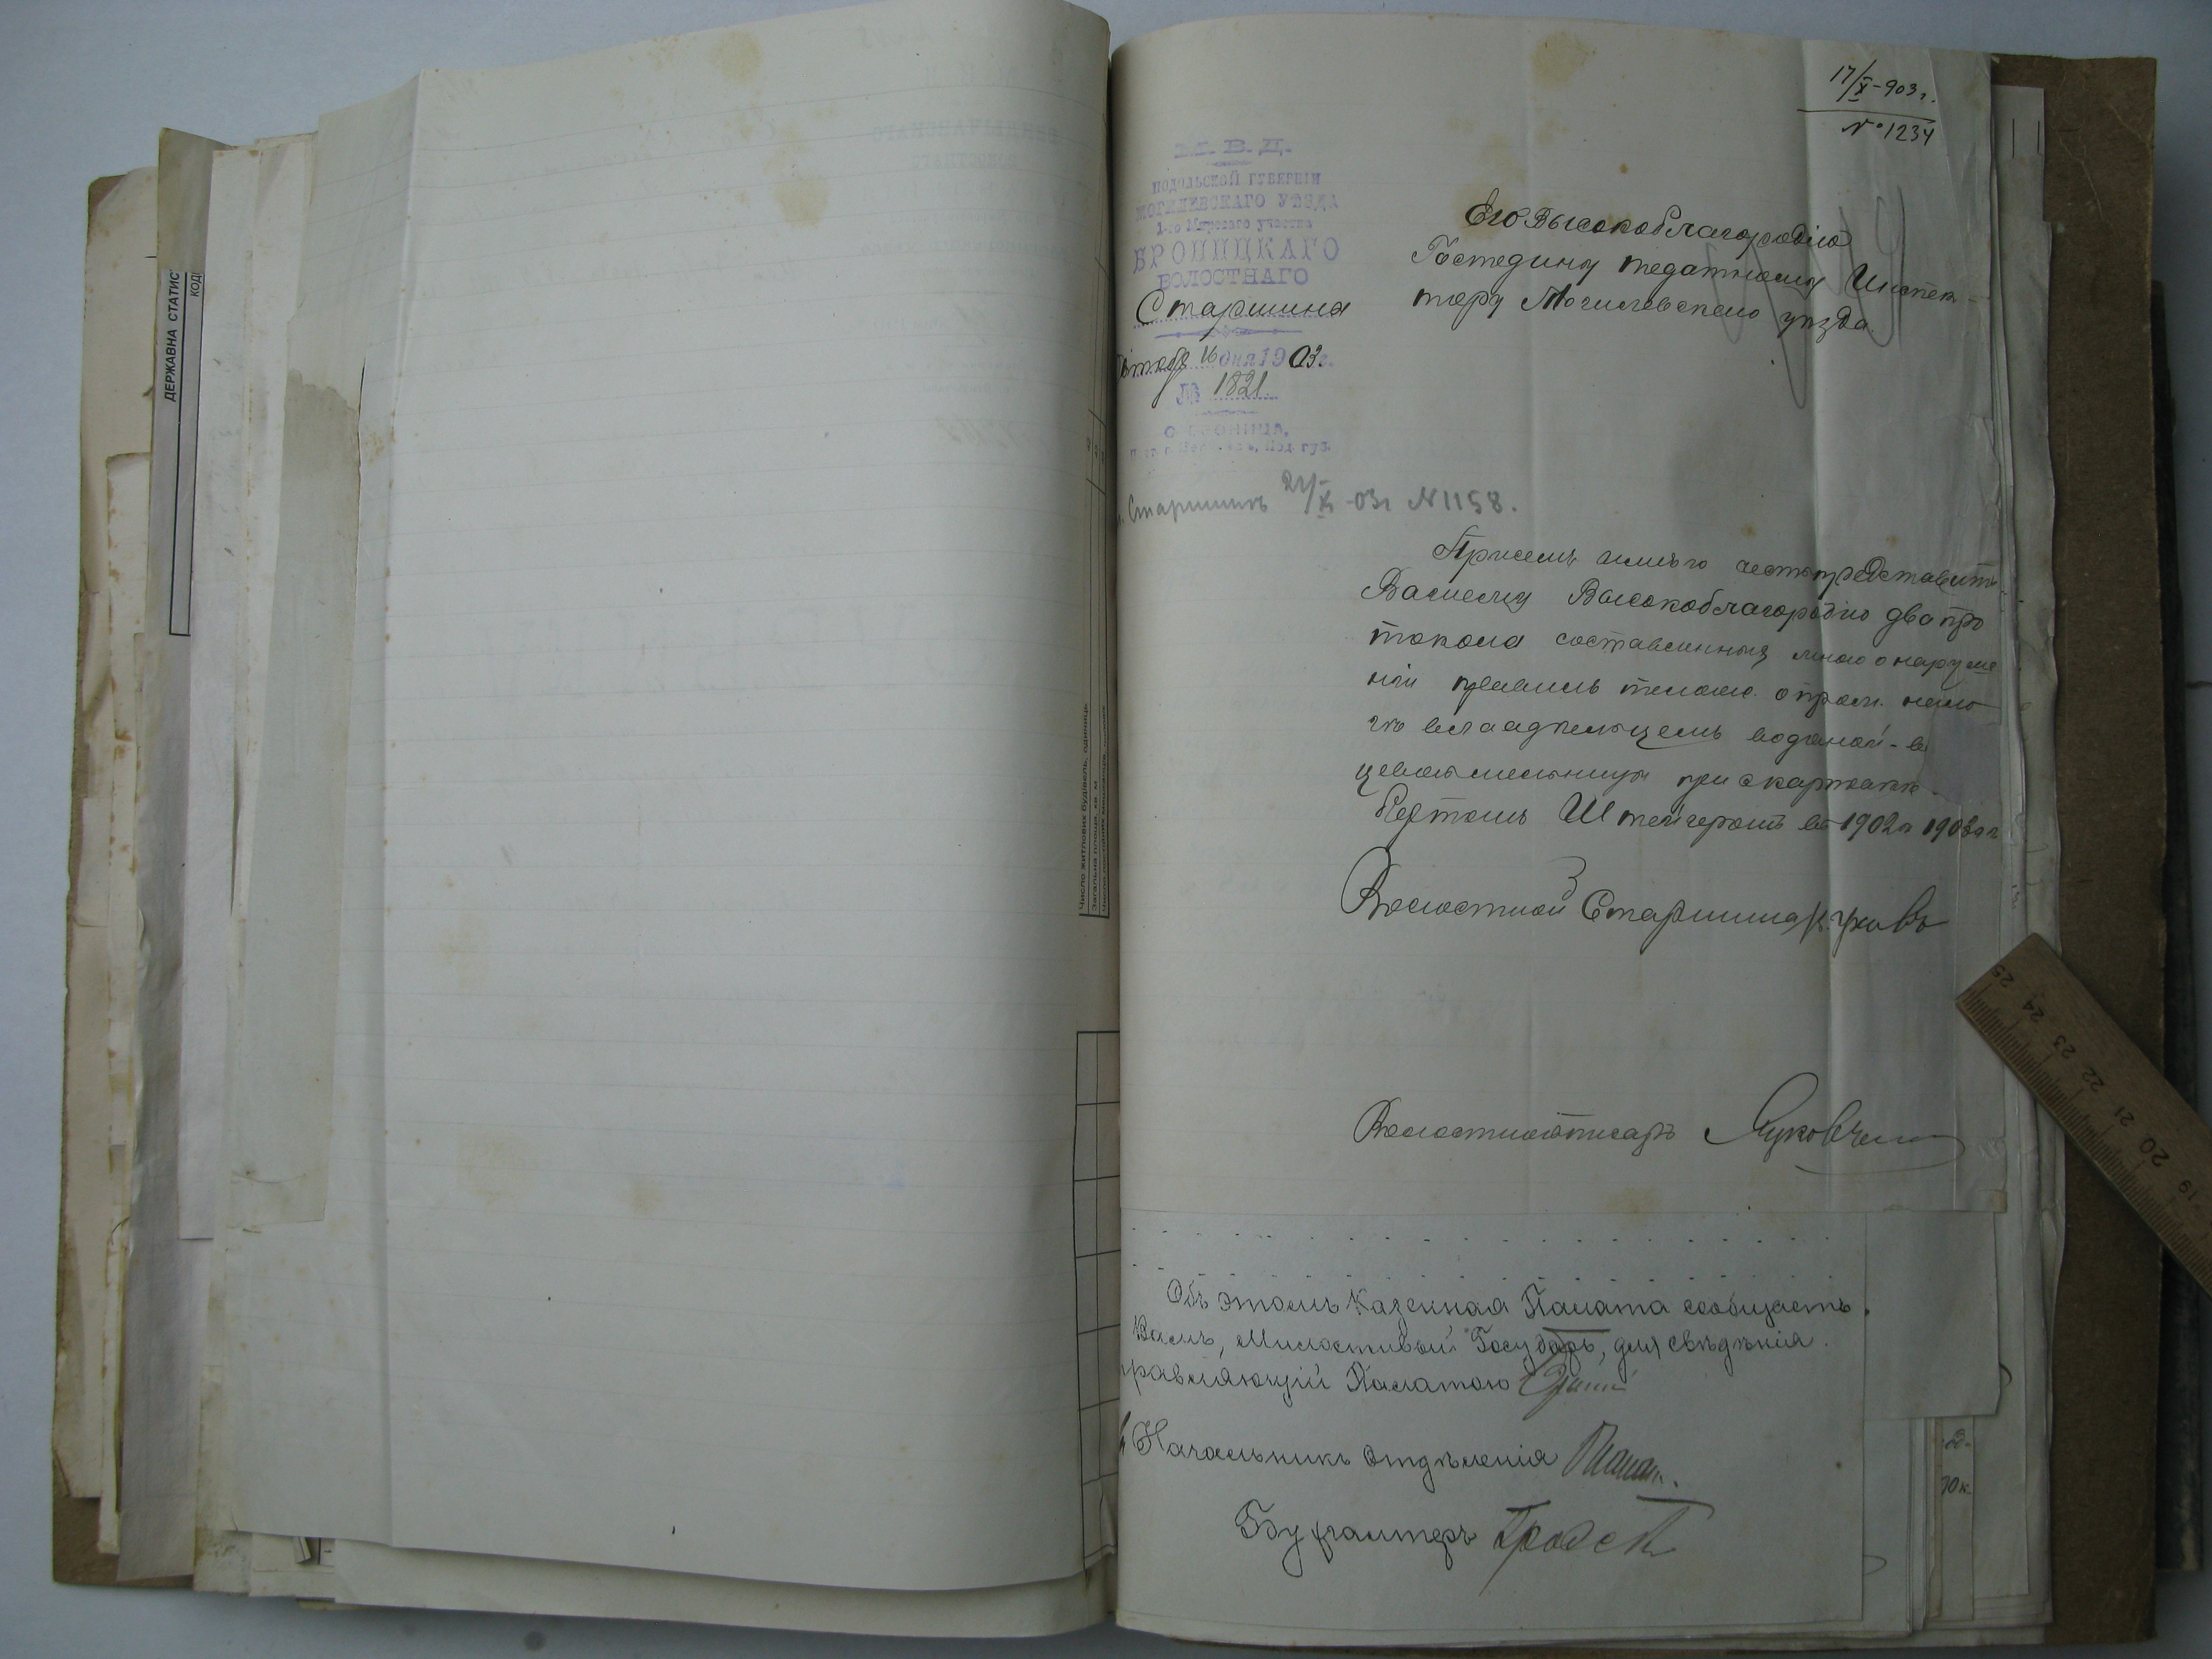 ДЕРЖАВНА СТАТИС
КОДИ
Число житлових будівель, одиниць
Загальна площа, кв. м
17/X-903 г.
№ 1234
М. В. Д.
ПОДОЛЬСКОЙ ГУБЕРНІИ
МОГИЛЕВСКАГО УѢЗДА
1-го Мирового участка
БРОНИЦКАГО
ВОЛОСТНАГО
Старшина
Октяб 16 дня 1903 г.
№ 1821.
Его Высокоблагородію
Господину Податному Инспек-
тору Могилевскаго уѣзда.
Старшинѣ 24/X -03 г № 1158.
При семъ имѣю честь представить
Вашему Высокоблагородію два про
токола составленныя мною о наруше
ніи правилъ о пром. нало
гѣ владѣльцемъ водяной - в
мельницы при
Штейгеромъ въ 1902 и 1903 гг
Волостной Старшина
Волостной писарь
Объ этомъ Казенная Палата сообщаетъ
Вамъ, Милостивый Государь, для свѣдѣнія.
правляющій Палатою
Начальникъ Отдѣленія
Бухгалтеръ
25 24 23 22 21 20 19